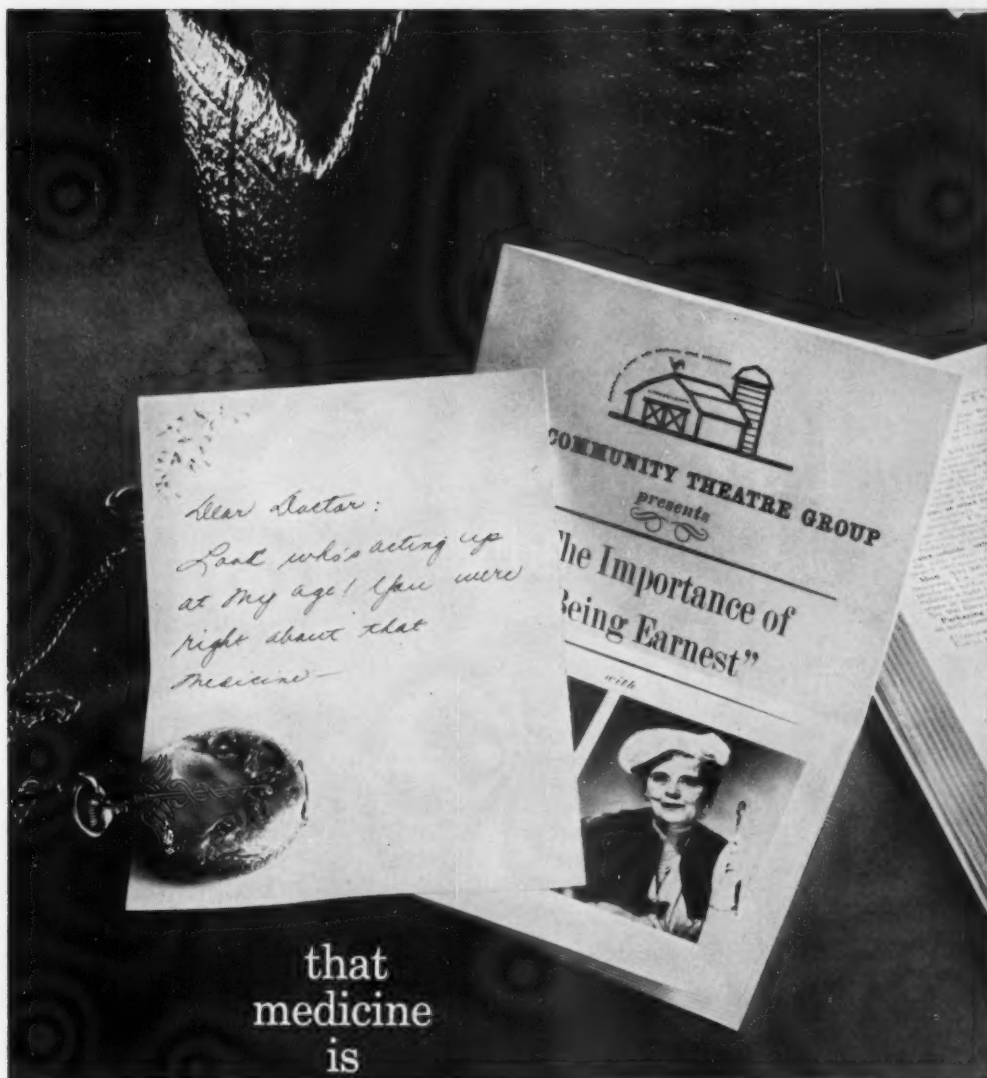 Dear Doctor:
Look who's acting up
at my age! You were
right about that
medicine—
COMMUNITY THEATRE GROUP
presents
The Importance of
Being Earnest”
with
that
medicine
is